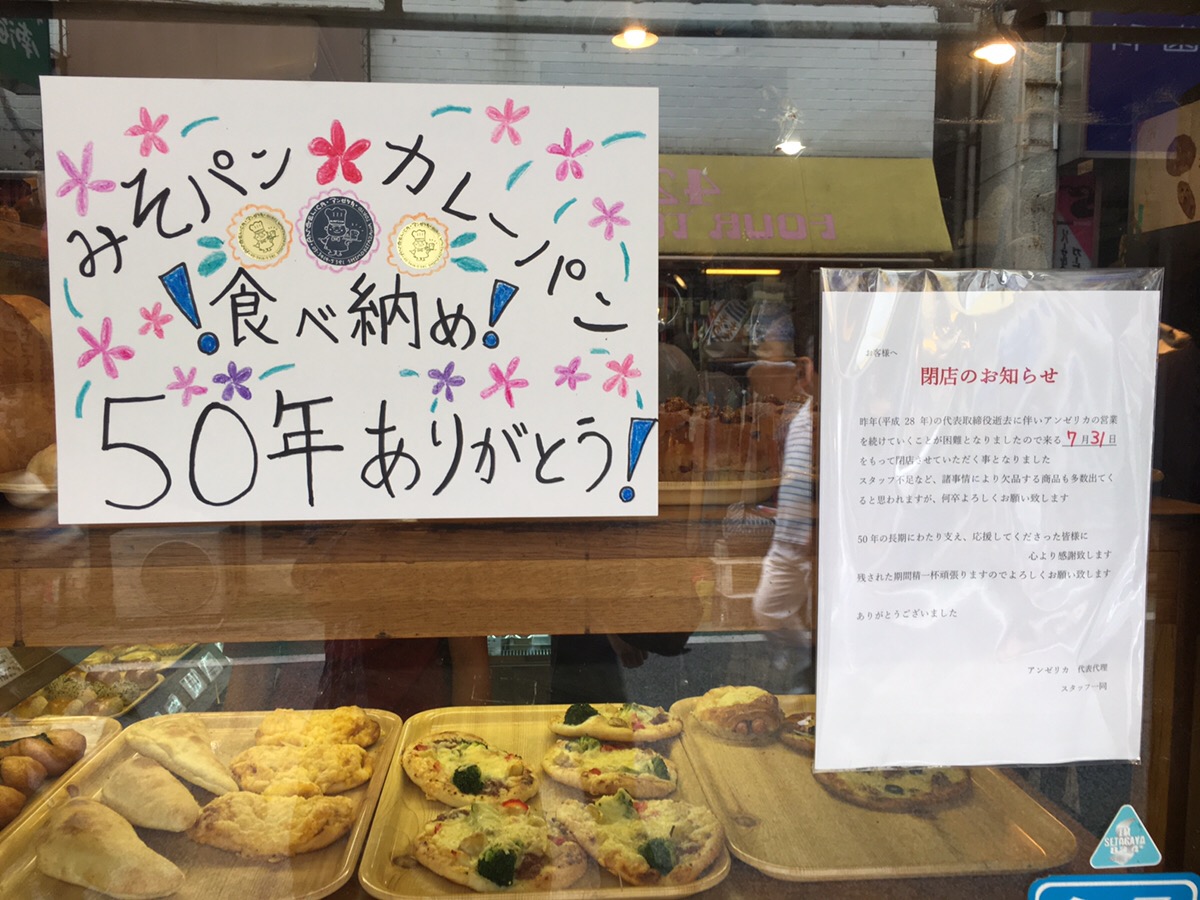 みそパン カレーパン
食べ納め!
50年ありがとう!
お客様へ
閉店のお知らせ
昨年(平成 28 年)の代表取締役逝去に伴いアンゼリカの営業
を続けていくことが困難となりましたので来る 7月31日
をもって閉店させていただく事となりました
スタッフ不足など、諸事情により欠品する商品も多数出てく
ると思われますが、何卒よろしくお願い致します
50年の長期にわたり支え、応援してくださった皆様に
心より感謝致します
残された期間精一杯頑張りますのでよろしくお願い致します
ありがとうございました
アンゼリカ 代表代理
スタッフ一同
SETAGAYA